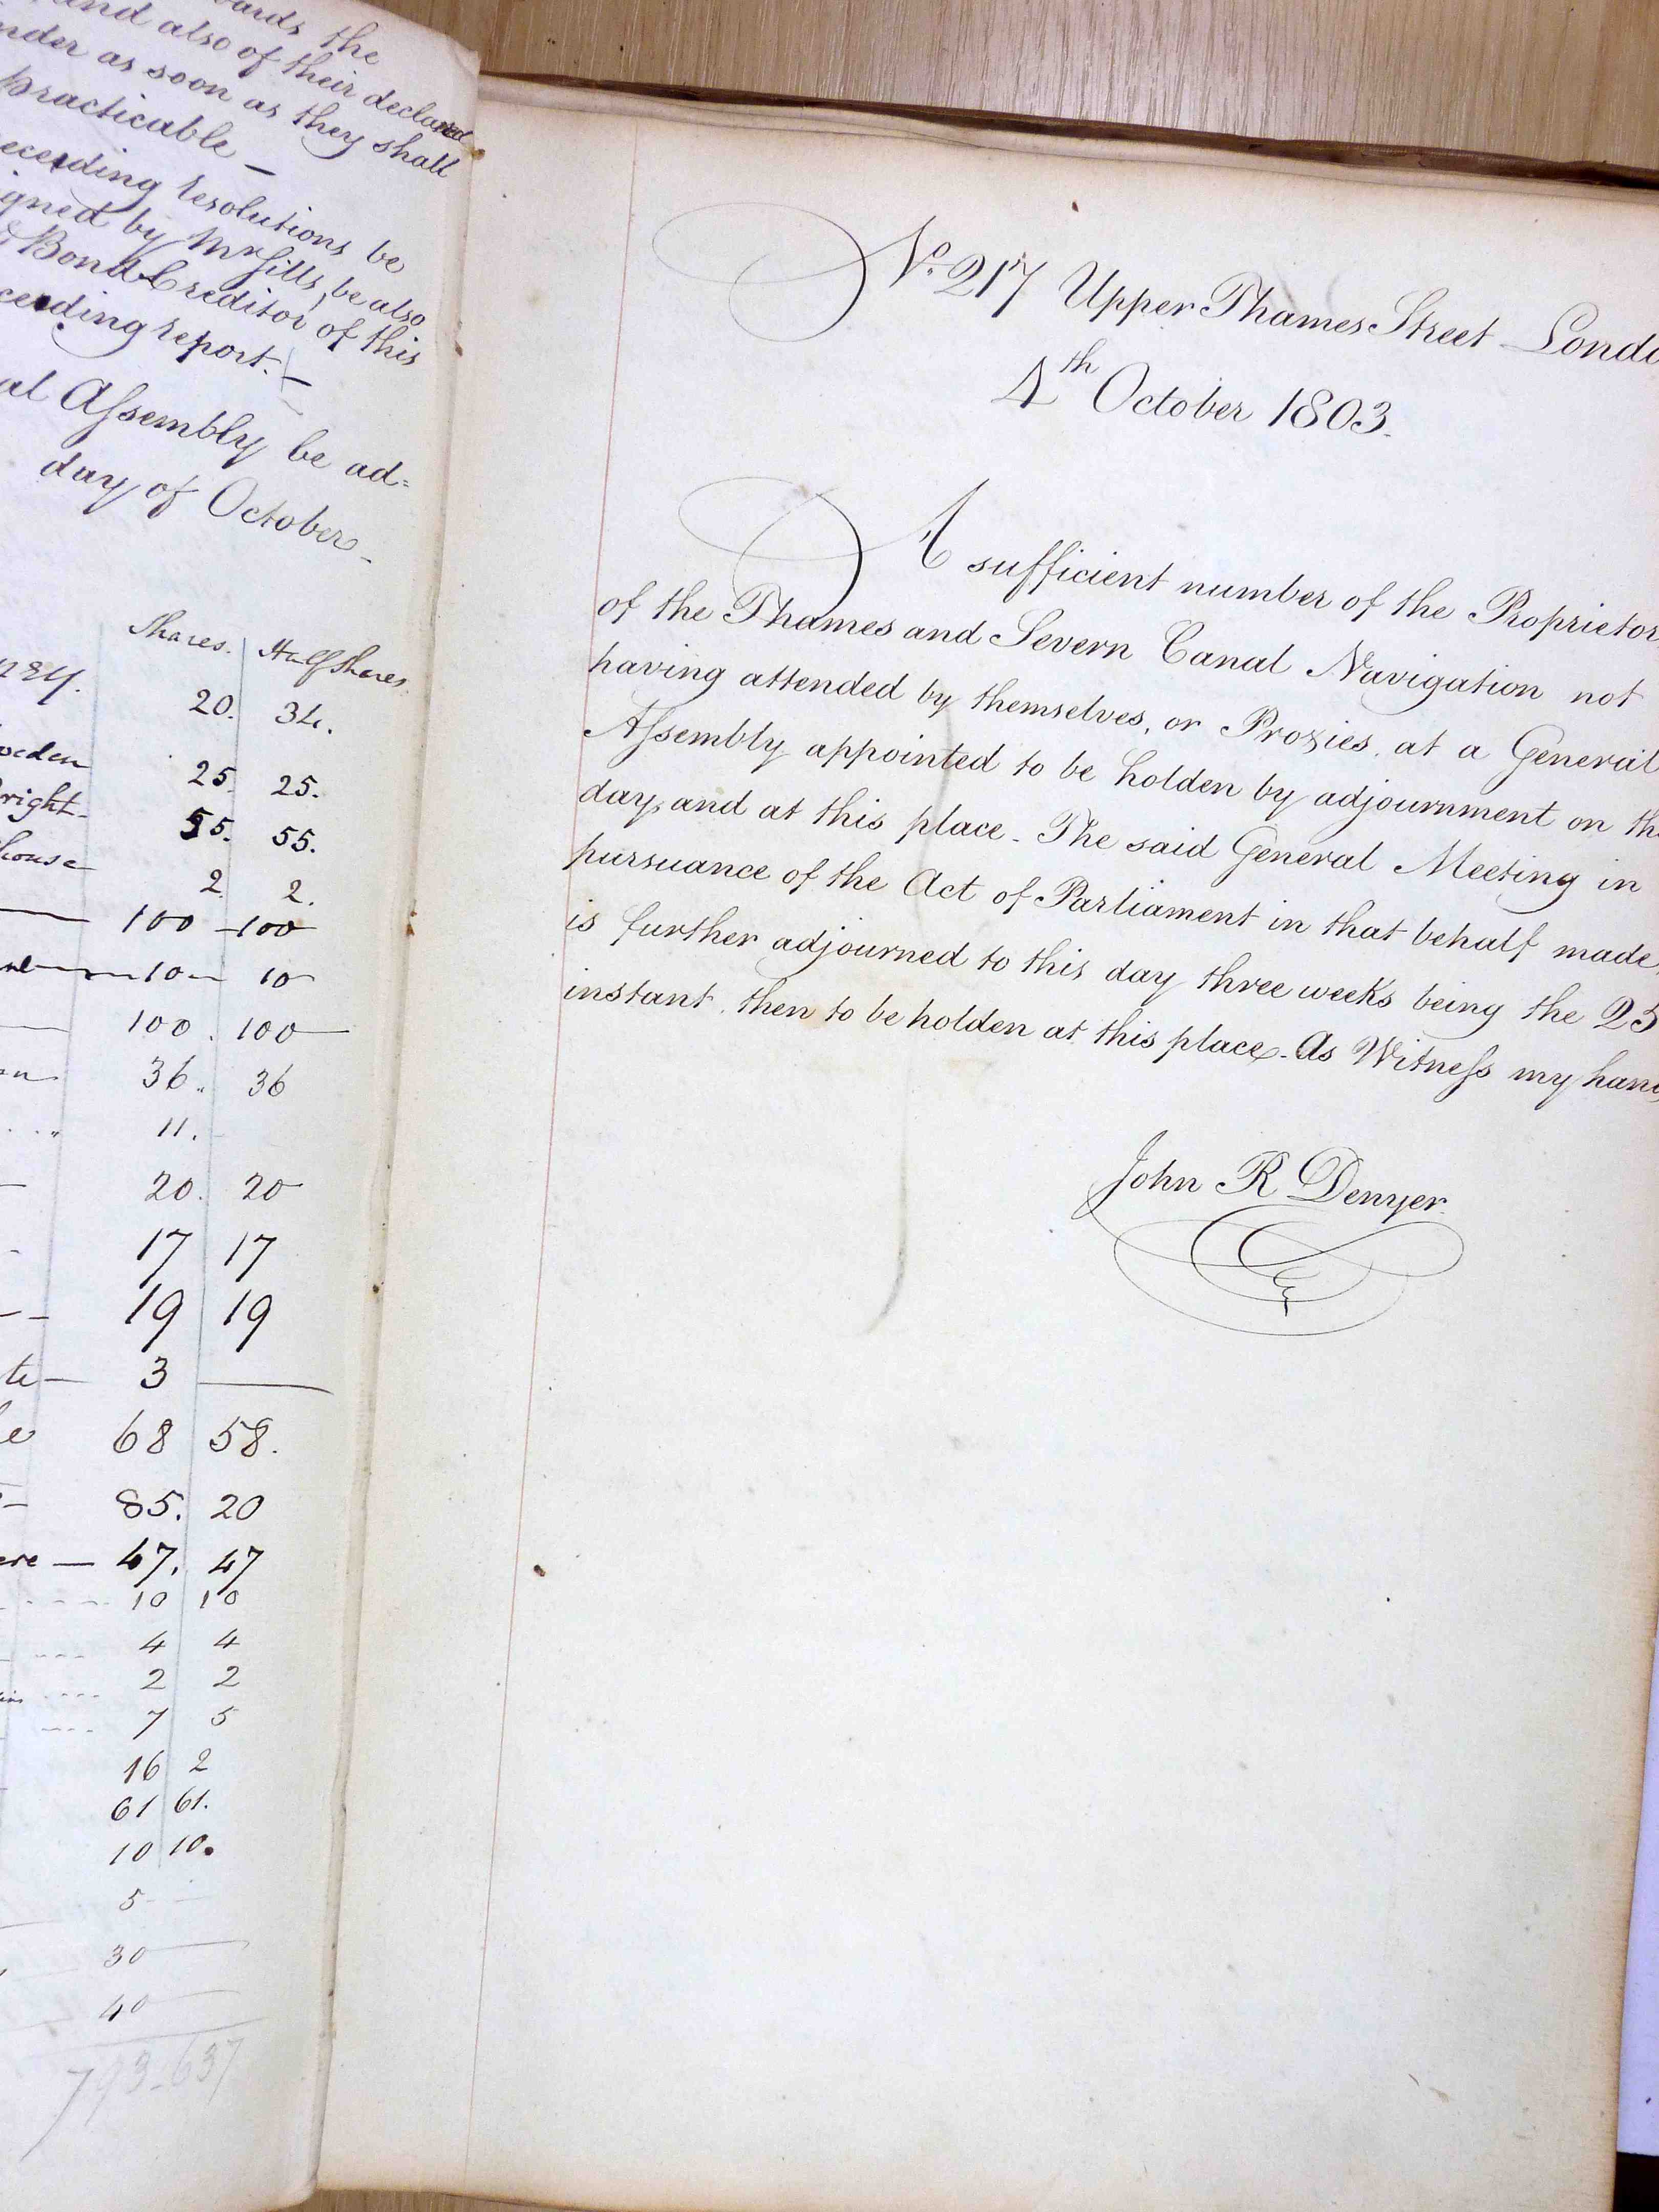 the
and also of their declared
as soon as they shall
practicable —
resolutions be
by Mr Gills, be also
Bond Creditor of this
report. —
Assembly be ad=
day of October —
Shares. Half Shares
20. 34.
25. 25.
55. 55.
2 2.
100 - 100
10 - 10
100. 100
36. 36
11.
20. 20
17 17
19 19
3 —
68 58.
85. 20
47. 47
10 10
4 4
2 2
7 5
16 2
61 61.
10 10.
5
30
40
793-637
No. 217 Upper Thames Street - 
4th October 1803.
A sufficient number of the
of the Thames and Severn Canal Navigation not
having attended by themselves, or Proxies, at a General
Assembly appointed to be holden by adjournment on
day, and at this place - The said General Meeting in
pursuance of the Act of Parliament in that behalf made
is further adjourned to this day three weeks being the 25
instant, then to be holden at this place - As Witness my
John R Denyer